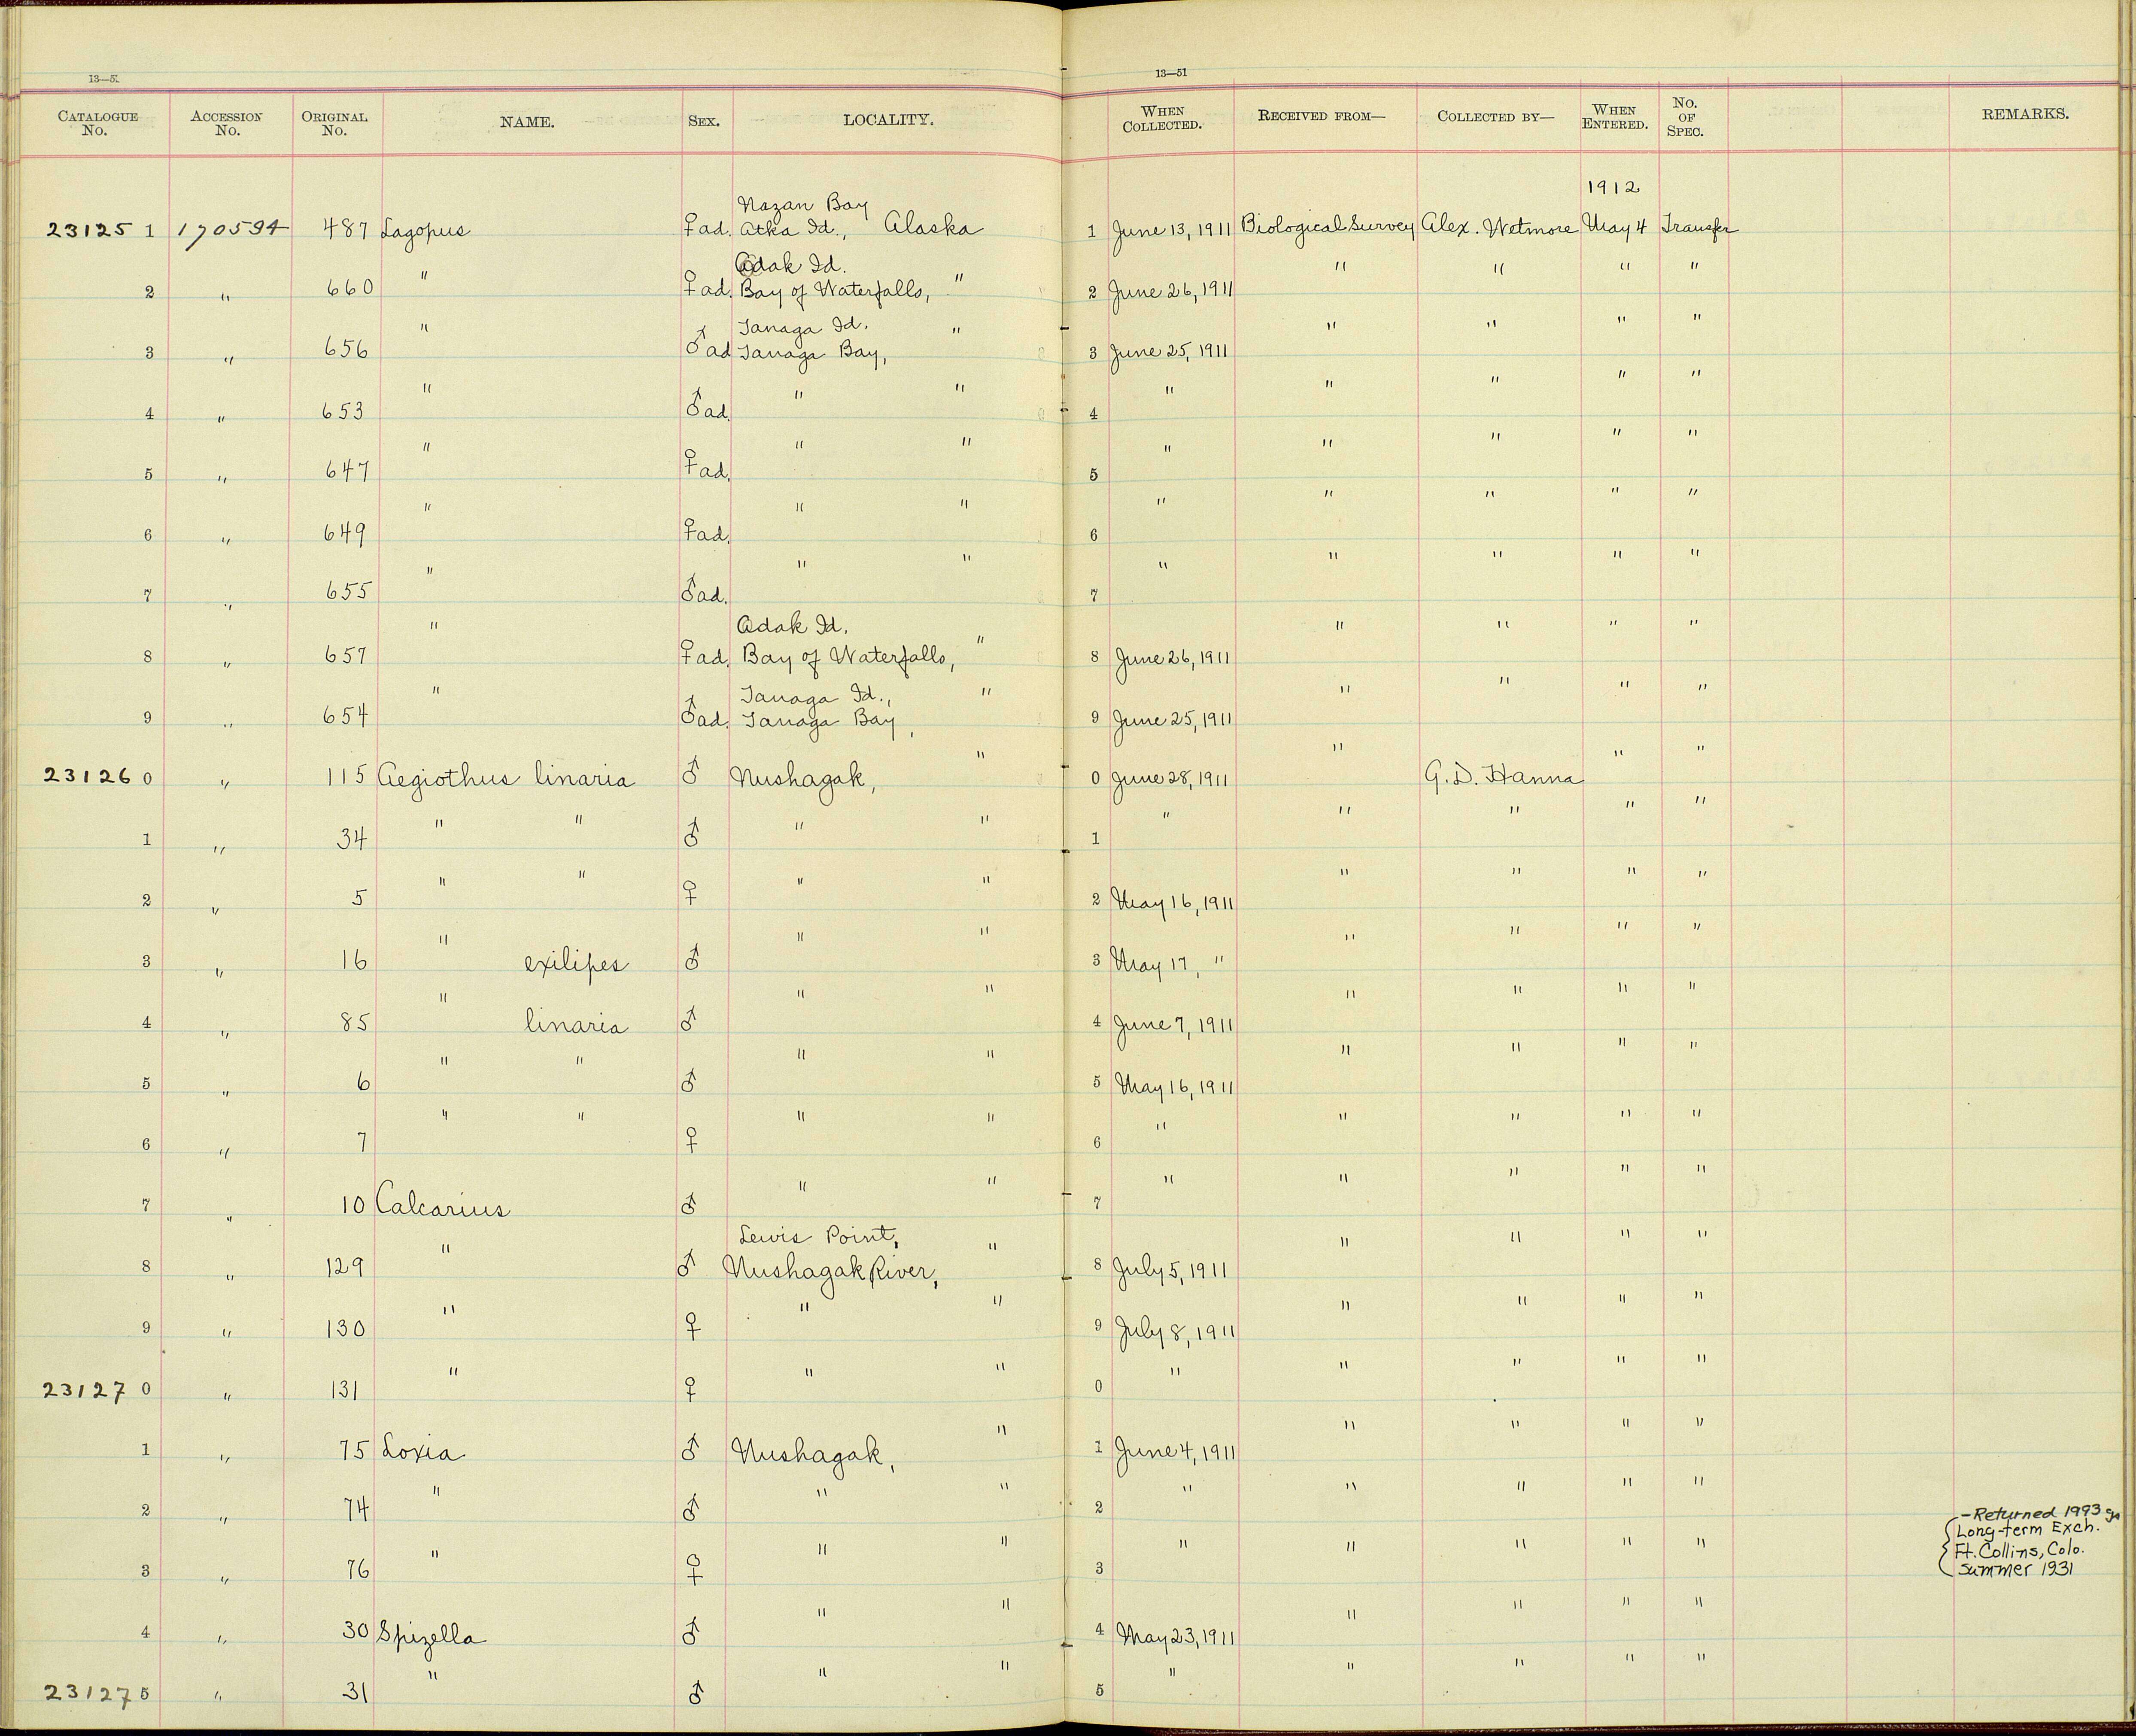 13—51
13—51
CATALOGUE No. ACCESSION No. ORIGINAL No. NAME. SEX. LOCALITY. WHEN COLLECTED. RECEIVED FROM— COLLECTED BY— WHEN ENTERED. No. OF SPEC. REMARKS.
1912
Nazan Bay
231251 170594 487 Lagopus ♀ad. Atka Id., Alaska 1 June 13, 1911 Biological Survey Alex. Wetmore May 4 Transfer
Adak Id.
2 " 660 " ♀ad. Bay of Waterfalls, " 2 June 26, 1911 " " " "
Tanaga Id.
3 " 656 " ♂ad Tanaga Bay, " 3 June 25, 1911 " " " "
4 " 653 " ♂ad. " " 4 " " " " "
5 " 647 " ♀ad. " " 5 " " " " "
6 " 649 " ♀ad. " " 6 " " " " "
7 " 655 " ♂ad. " " 7 " " " " "
Adak Id.
8 " 657 " ♀ad. Bay of Waterfalls, " 8 June 26, 1911 " " " "
Tanaga Id.,
9 " 654 " ♂ad. Tanaga Bay, " 9 June 25, 1911 " " " "
231260 " 115 Aegiothus linaria ♂ Nushagak, " 0 June 28, 1911 " G. D. Hanna " "
1 " 34 " " ♂ " " 1 " " " " "
2 " 5 " " ♀ " " 2 May 16, 1911 " " " "
3 " 16 " exilipes ♂ " " 3 May 17, " " " " "
4 " 85 " linaria ♂ " " 4 June 7, 1911 " " " "
5 " 6 " " ♂ " " 5 May 16, 1911 " " " "
6 " 7 " " ♀ " " 6 " " " " "
7 " 10 Calcarius ♂ " " 7 " " " " "
Lewis Point,
8 " 129 " ♂ Nushagak River, " 8 July 5, 1911 " " " "
9 " 130 " ♀ " " 9 July 8, 1911 " " " "
231270 " 131 " ♀ " " 0 " " " " "
1 " 75 Loxia ♂ Nushagak, " 1 June 4, 1911 " " " "
2 " 74 " ♂ " " 2 " " " " "
3 " 76 " ♀ " " 3 " " " " "
-Returned 1993
Long-term Exch.
Ft. Collins, Colo.
summer 1931
4 " 30 Spizella ♂ " " 4 May 23, 1911 " " " "
231275 " 31 " ♂ " " 5 " " " " "